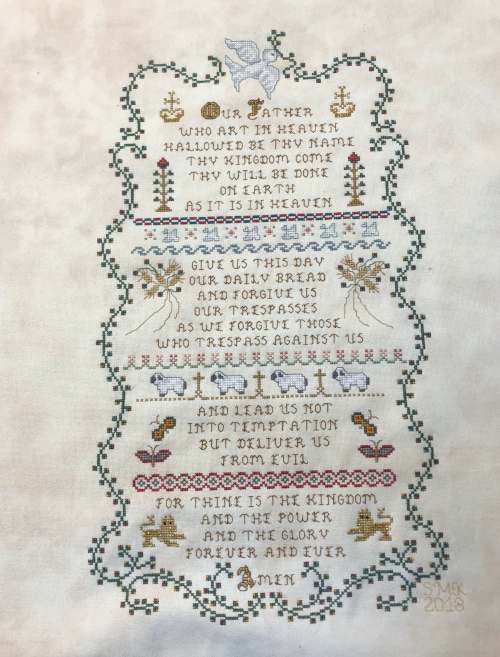 OUR FATHER
WHO ART IN HEAVEN
HALLOWED BE THY NAME
THY KINGDOM COME
THY WILL BE DONE
ON EARTH
AS IT IS IN HEAVEN
GIVE US THIS DAY
OUR DAILY BREAD
AND FORGIVE US
OUR TRESPASSES
AS WE FORGIVE THOSE
WHO TRESPASS AGAINST US
AND LEAD US NOT
INTO TEMPTATION
BUT DELIVER US
FROM EVIL
FOR THINE IS THE KINGDOM
AND THE POWER
AND THE GLORY
FOREVER AND EVER
AMEN
2018